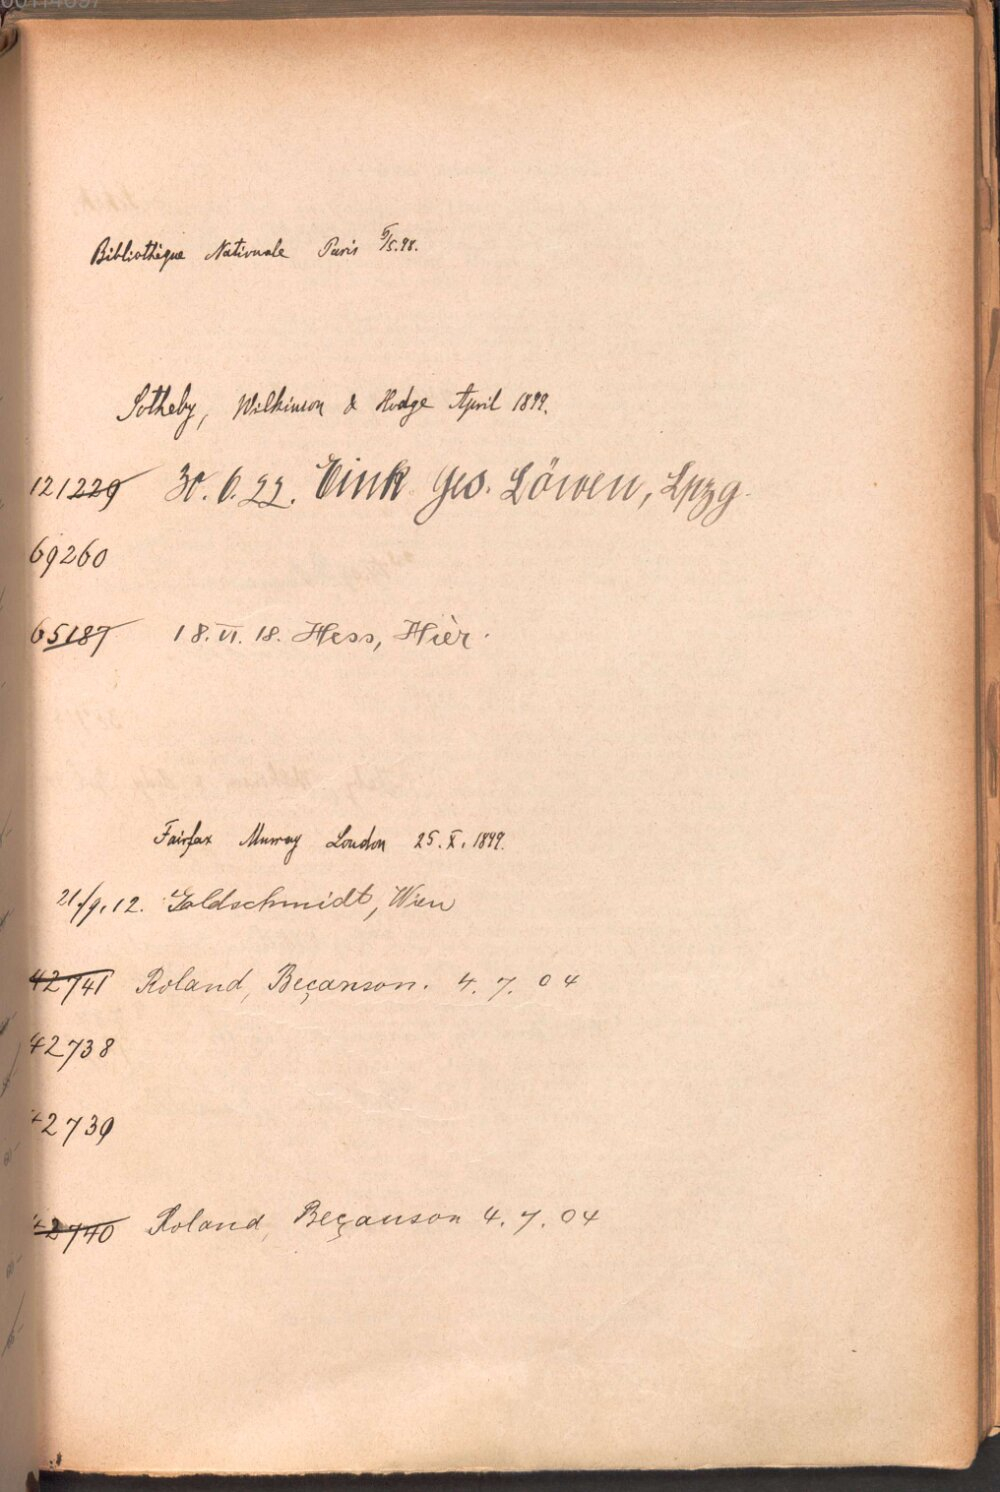 Bibliothèque Nationale Paris 5/5.98.
Sotheby, Wilkinson & Hodge April 1899.
121229 30. 6. 22. Eink. Ges. Löwen, Lpzg.
69260
65187 18. VI. 18. Hess, Hier.
Fairfax Murray London 25. X. 1899.
21./9. 12. Goldschmidt, Wien
42741 Roland, Beçanson. 4. 7. 04
42738
42739
42740 Roland, Beçanson 4. 7. 04